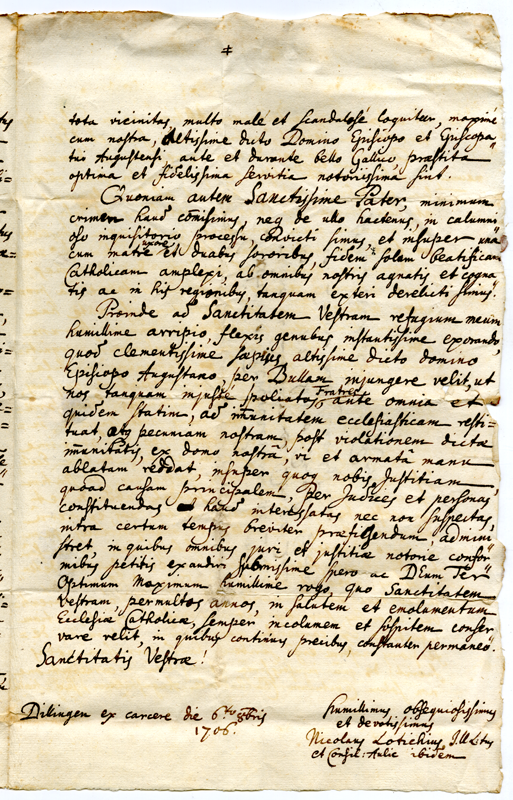 tota vicinitas, multo malé et scandalosé loquitur, maximé
cum nostra, Altissime dicto Domino Episcopo et Episcopa
tui Augustensi, ante et durante bello Gallico, præstita
optima et fidelissima servitia notorissima sint.
Quoniam autem Sanctissime Pater, minimum
crimen haud comisimus, neq de ullo hactenus, in calumni
oso inquisitorio processu, convicti simus, et insuper unà
cum matre uxore et duabus sororibus, fidem solam beatificam
Catholicam amplexi, ab omnibus nostris agnatis et cogna
tis ac in his regionibus, tanquam exteri derelicti simus.
Proinde ad Sanctitatem Vestram refugium meum
humillime arripio, flexis genubus instantissime exorando,
quod clementissime sæpius altissime dicto domino
Episcopo Augustano, per Bullam injungere velit, ut
nos tanquam injuste spoliatos Fratres ante omnia et
quidem statim, ad immunitatem ecclesiasticam resti=
tuat, pecuniam nostram, post violationem dictæ
immunitatis, ex domo nostra, vi et armatâ manu
ablatam reddat, insuper quoq nobis Justitiam,
quoad causam principalem, Per Judices et personas,
constituendas haud interessatas nec non suspectas,
intra certum tempus breviter præfigendum, admini
stret, in quibus omnibus juri et justitiæ notorie confor
mibus petitis exaudiri submisissime spero ac DEum Ter
Optimum Maximum humillime rogo, quo Sanctitatem
Vestram, permultos annos, in salutem et emolumentum
Ecclesiæ Catholicæ, semper incolumem et sospitem conser
vare velit, in quibus continuis precibus, constanter permaneo.
Sanctitatis Vestræ!
Dillingen ex carcere die 6to 8bris
1706.
humillimus obsequiosissimus
et devotissimus
Nicolaus Lotichius J.U.Ltus
et Consil: Aulic ibidem